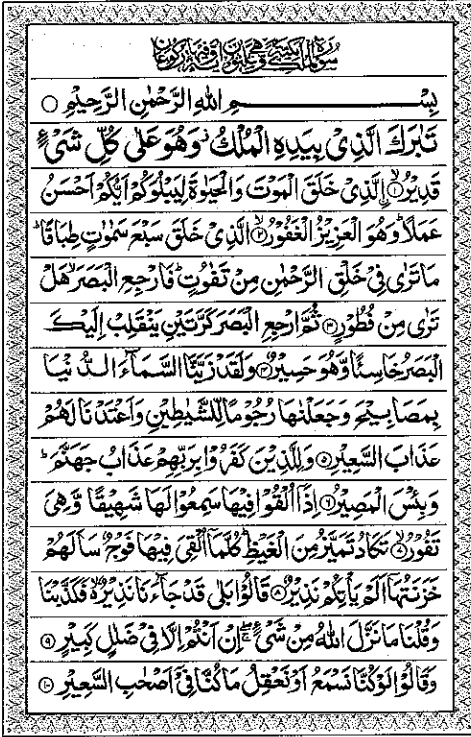 سورة الملك مكية وهي ثلثون آية وفيها ركوعان
بِسْمِ اللهِ الرَّحْمٰنِ الرَّحِيْمِ ○
تَبٰرَكَ الَّذِىْ بِيَدِهِ الْمُلْكُ وَهُوَ عَلٰى كُلِّ شَىْءٍ
قَدِيْرُۨ ۝۱ الَّذِىْ خَلَقَ الْمَوْتَ وَالْحَيٰوةَ لِيَبْلُوَكُمْ اَيُّكُمْ اَحْسَنُ
عَمَلًا ؕ وَهُوَ الْعَزِيْزُ الْغَفُوْرُ ۝۲ الَّذِىْ خَلَقَ سَبْعَ سَمٰوٰتٍ طِبَاقًا ؕ
مَا تَرٰى فِىْ خَلْقِ الرَّحْمٰنِ مِنْ تَفٰوُتٍ ؕ فَارْجِعِ الْبَصَرَ هَلْ
تَرٰى مِنْ فُطُوْرٍ ۝۳ ثُمَّ ارْجِعِ الْبَصَرَ كَرَّتَيْنِ يَنْقَلِبْ اِلَيْكَ
الْبَصَرُ خَاسِئًا وَّهُوَ حَسِيْرٌ ۝۴ وَلَقَدْ زَيَّنَّا السَّمَآءَ الدُّنْيَا
بِمَصَابِيْحَ وَجَعَلْنٰهَا رُجُوْمًا لِّلشَّيٰطِيْنِ وَاَعْتَدْنَا لَهُمْ
عَذَابَ السَّعِيْرِ ۝۵ وَلِلَّذِيْنَ كَفَرُوْا بِرَبِّهِمْ عَذَابُ جَهَنَّمَ ؕ
وَبِئْسَ الْمَصِيْرُ ۝۶ اِذَآ اُلْقُوْا فِيْهَا سَمِعُوْا لَهَا شَهِيْقًا وَّهِىَ
تَفُوْرُ ۝۷ تَكَادُ تَمَيَّزُ مِنَ الْغَيْظِ ؕ كُلَّمَآ اُلْقِىَ فِيْهَا فَوْجٌ سَاَلَهُمْ
خَزَنَتُهَآ اَلَمْ يَاْتِكُمْ نَذِيْرٌ ۝۸ قَالُوْا بَلٰى قَدْ جَآءَنَا نَذِيْرٌ ۙ فَكَذَّبْنَا
وَقُلْنَا مَا نَزَّلَ اللهُ مِنْ شَىْءٍ ۖ اِنْ اَنْتُمْ اِلَّا فِىْ ضَلٰلٍ كَبِيْرٍ ۝۹
وَقَالُوْا لَوْ كُنَّا نَسْمَعُ اَوْ نَعْقِلُ مَا كُنَّا فِىْٓ اَصْحٰبِ السَّعِيْرِ ۝۱۰